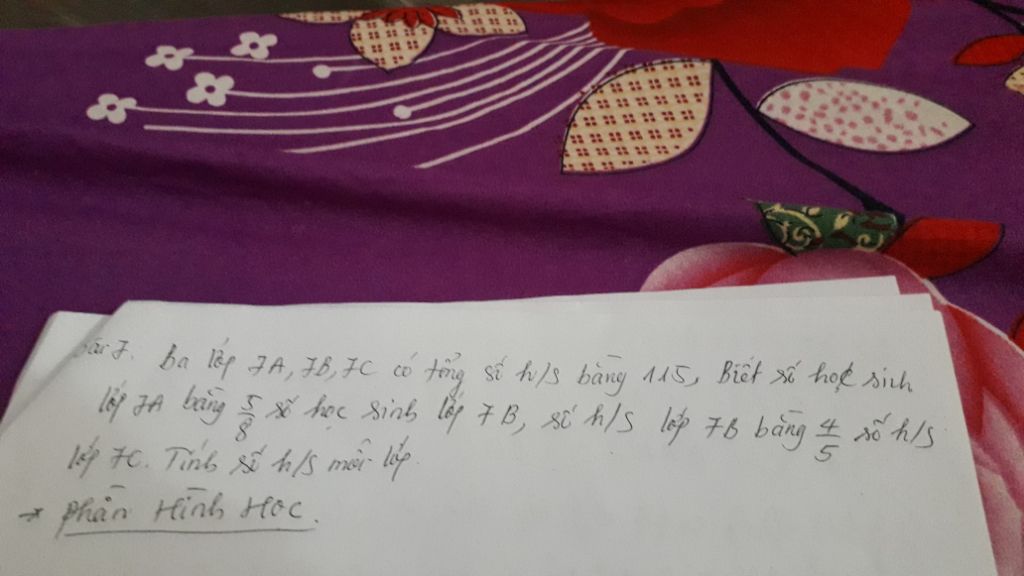 bài 7. Ba lớp 7A, 7B, 7C có tổng số h/s bằng 115, Biết số học sinh
lớp 7A bằng 5/8 số học sinh lớp 7B, số h/s lớp 7B bằng 4/5 số h/s
lớp 7C. Tính số h/s mỗi lớp.
* phần Hình Học.